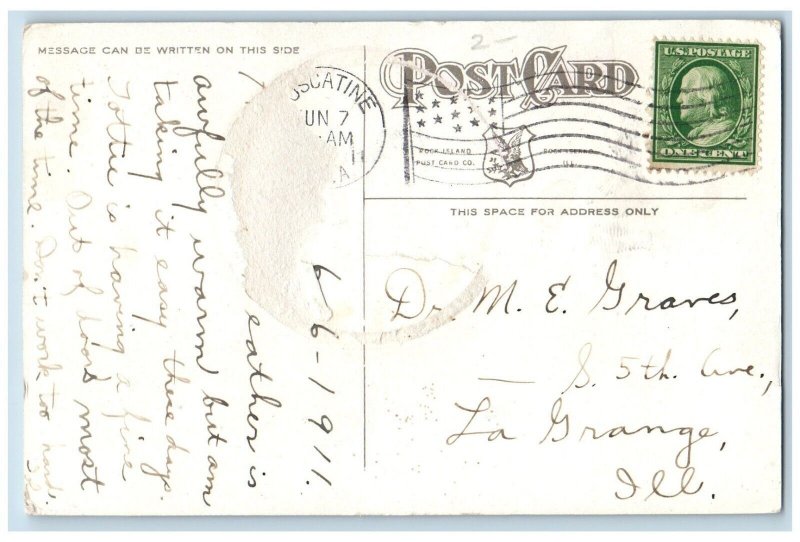 2-
MESSAGE CAN BE WRITTEN ON THIS SIDE
POST CARD
ROCK ISLAND
POST CARD CO.
ROCK ISLAND
ILL.
USCATINE
UN 7
AM
A
U.S. POSTAGE
ONE CENT
THIS SPACE FOR ADDRESS ONLY
6-6-1911.
eather is
awfully warm but am
taking it easy these days.
Tottie is having a fine
time. Out of doors most
of the time. Don't work too hard.
Dr. M. E. Graves,
— S. 5th. Ave.,
La Grange,
Ill.